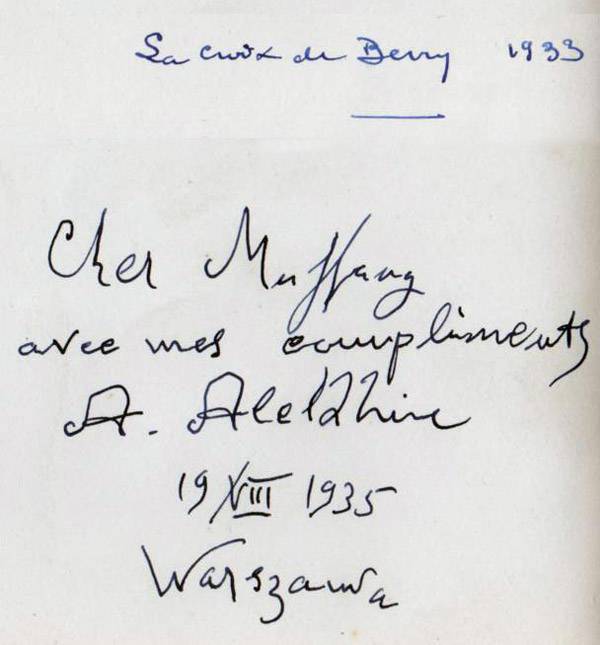 La croix de Berry 1933
Cher Muffang
avec mes compliments
A. Alekhine
19 VIII 1935
Warszawa